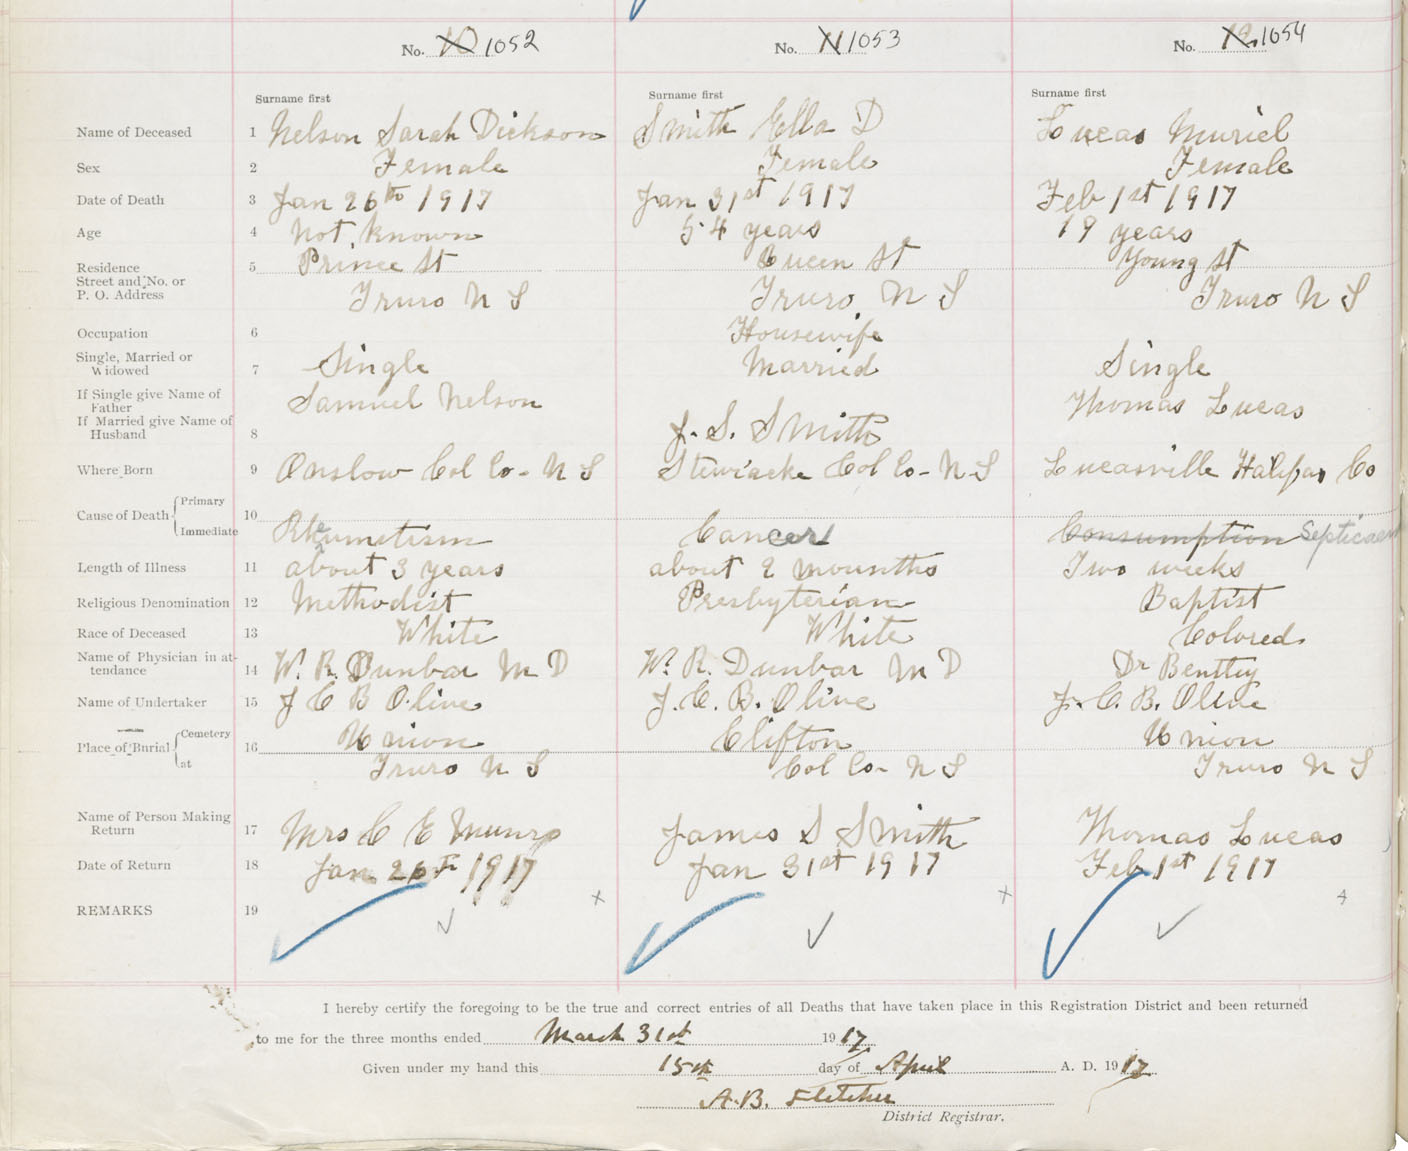 No. 10 1052 No. 11 1053 No. 12 1054
Surname first Surname first Surname first
Name of Deceased 1 Nelson Sarah Dickson Smith Ella D Lucas Muriel
Sex 2 Female Female Female
Date of Death 3 Jan 26th 1917 Jan 31st 1917 Feb 1st 1917
Age 4 Not known 54 years 19 years
Residence 5 Prince St Queen St Young St
Street and No. or
P. O. Address Truro N S Truro N S Truro N S
Occupation 6 Housewife
Single, Married or
Widowed 7 Single Married Single
If Single give Name of
Father Samuel Nelson Thomas Lucas
If Married give Name of
Husband 8 J. S. Smith
Where Born 9 Onslow Col Co- N S Stewiacke Col Co- N S Lucasville Halifax Co
Primary
Cause of Death 10
Immediate Rheumatism Cancer Consumption
Length of Illness 11 about 3 years about 2 mounths Two weeks
Religious Denomination 12 Methodist Presbyterian Baptist
Race of Deceased 13 White White Colored
Name of Physician in at-
tendance 14 W. R. Dunbar M D W. R. Dunbar M D Dr
Name of Undertaker 15 J C B Olive J. C. B. Olive J. C. B. Olive
Cemetery
Place of Burial 16 Union Clifton Union
at Truro N S Col Co- N S Truro N S
Name of Person Making
Return 17 Mrs C E Munro James S Smith Thomas Lucas
Date of Return 18 Jan 1917 Jan 31st 1917 Feb 1st 1917
REMARKS 19
I hereby certify the foregoing to be the true and correct entries of all Deaths that have taken place in this Registration District and been returned
to me for the three months ended March 31st 1917
Given under my hand this 15th day of April A. D. 1917
A. B. Fletcher
District Registrar.